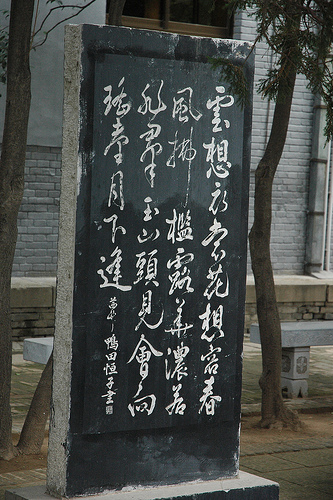 雲想衣裳花想容春
風拂檻露華濃若
非羣玉山頭見會向
瑤臺月下逢
鴨田恒子書